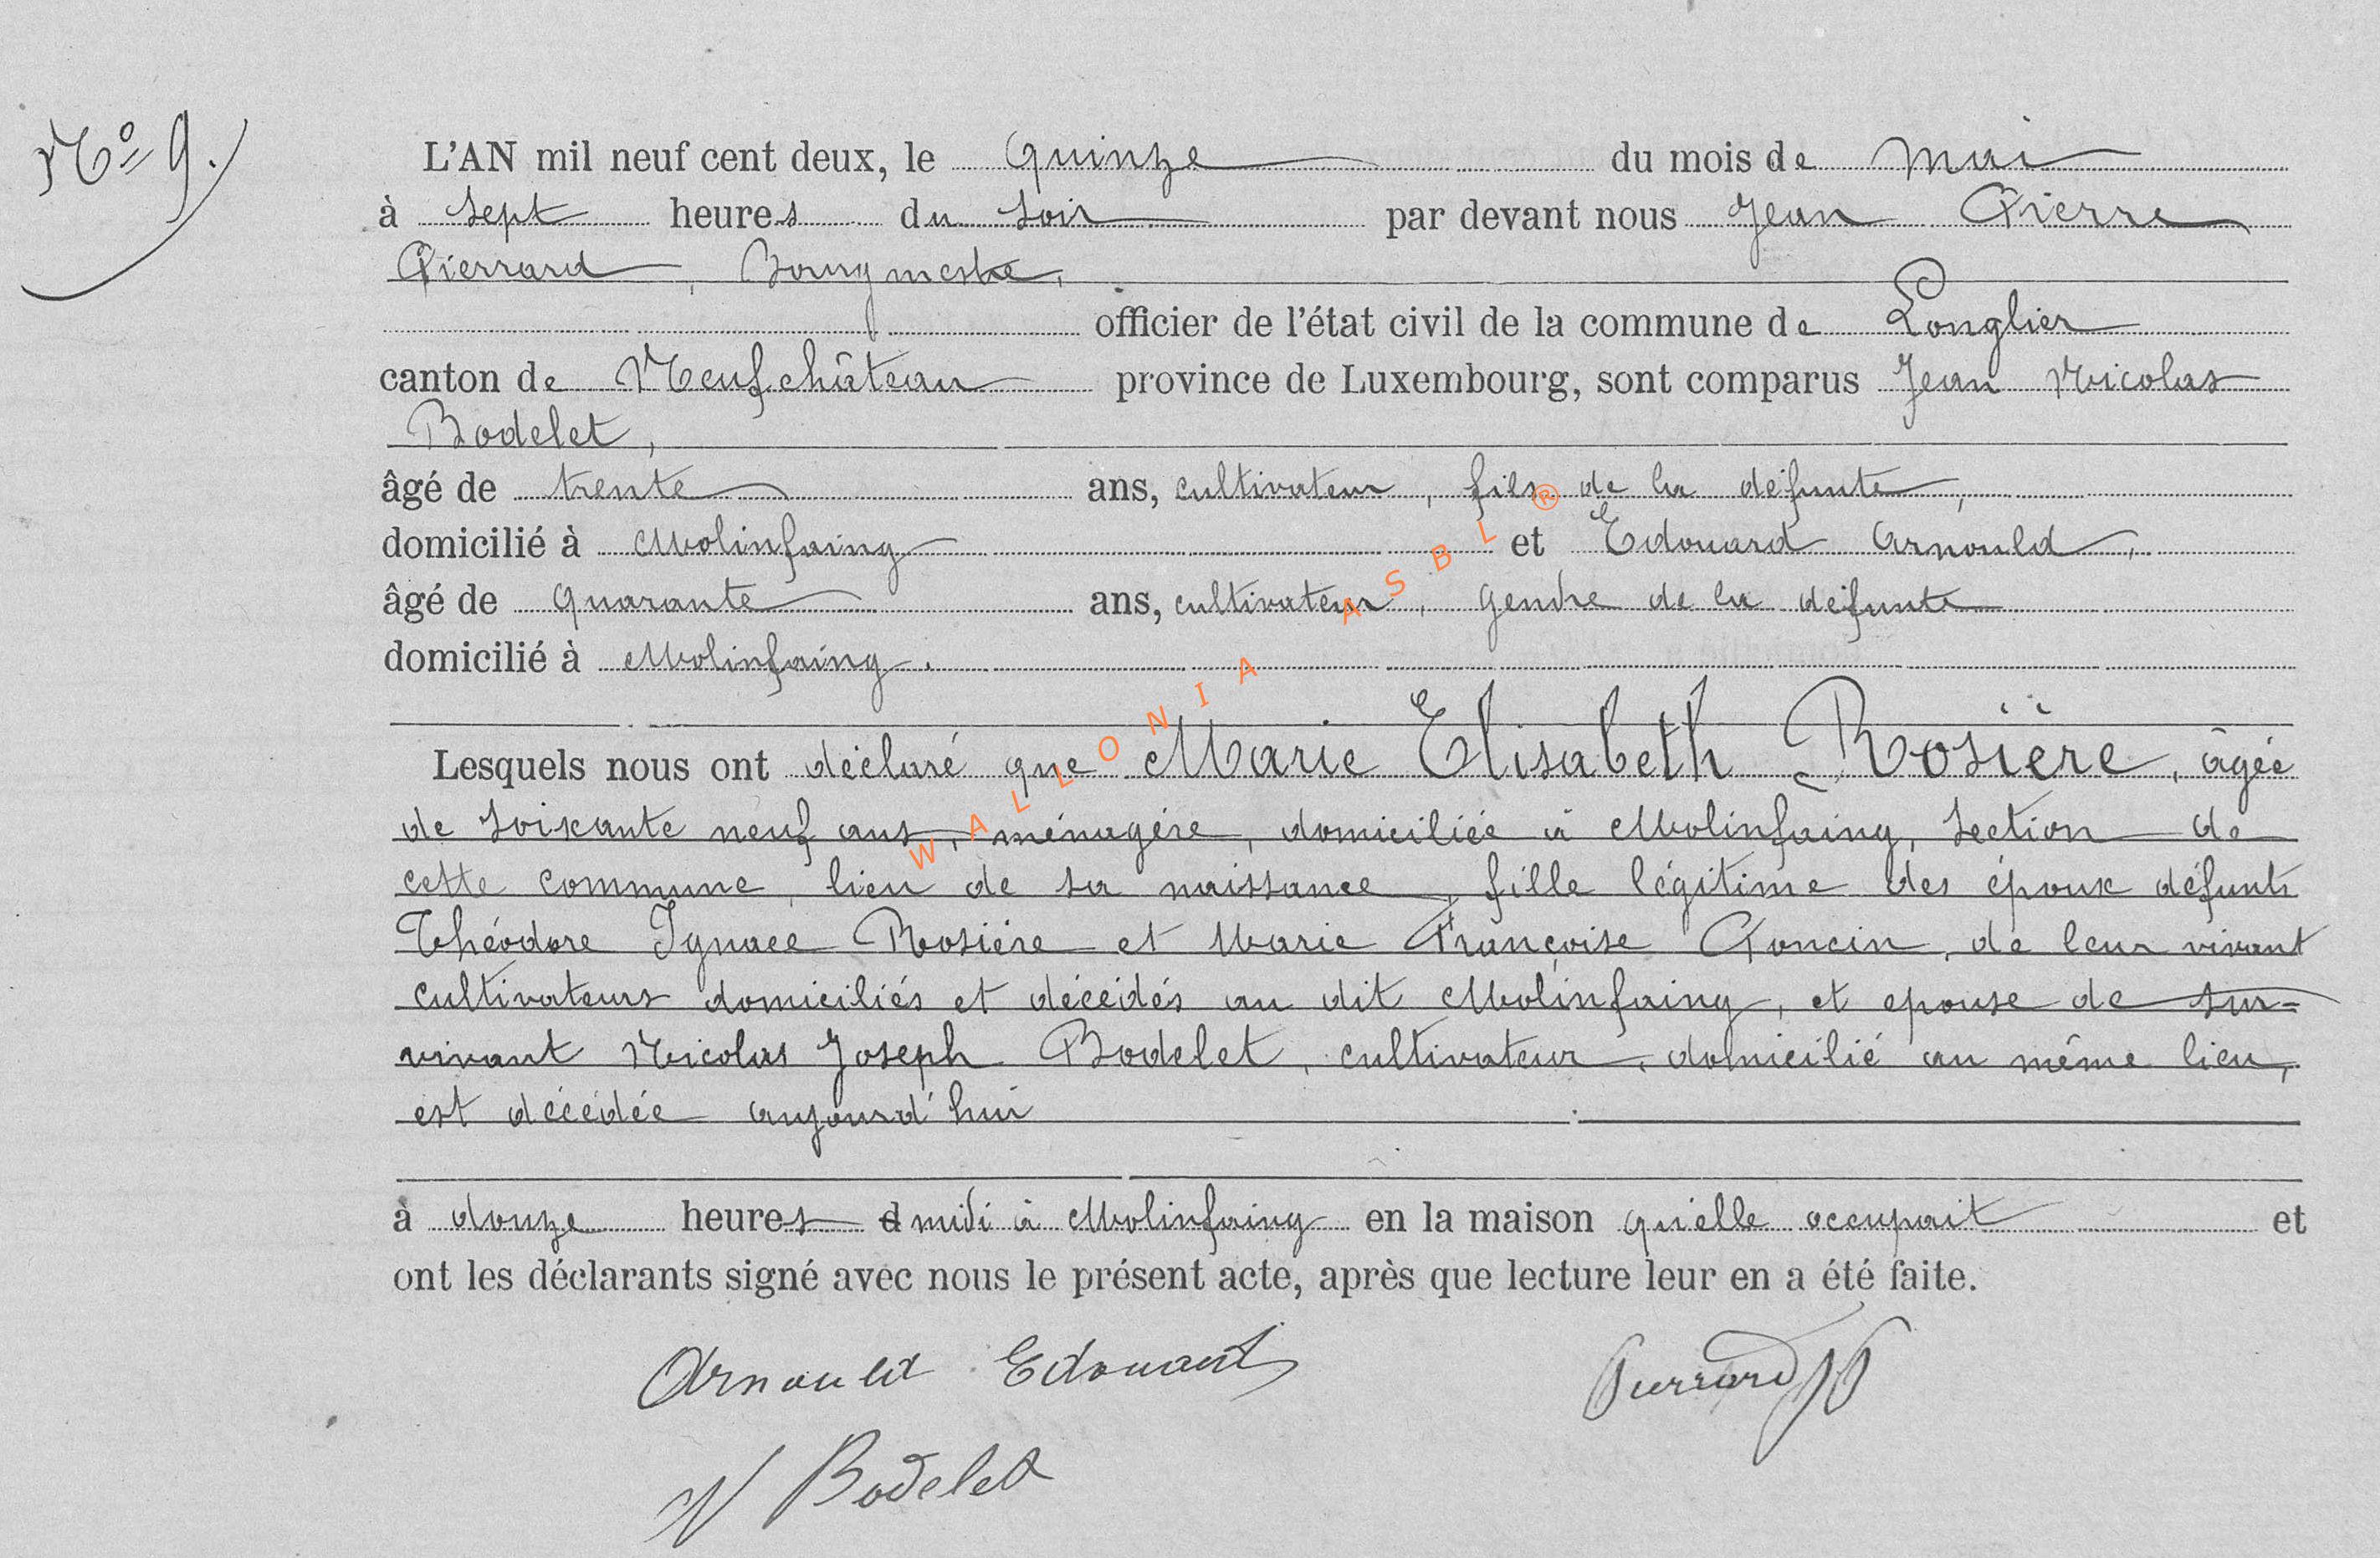 No 9.
L'AN mil neuf cent deux, le Quinze du mois de mai
à sept heures du soir par devant nous Jean Pierre
Pierrard, Bourgmestre,
officier de l'état civil de la commune de Longlier
canton de Neufchâteau province de Luxembourg, sont comparus Jean Nicolas
Bodelet,
âgé de trente ans, cultivateur, fils de la défunte,
domicilié à Molinfaing et Edouard Arnould,
âgé de quarante ans, cultivateur, gendre de la défunte
domicilié à Molinfaing.
Lesquels nous ont déclaré que Marie Elisabeth Rosière, âgée
de soixante neuf ans, ménagère, domiciliée à Molinfaing, section de
cette commune, lieu de sa naissance, fille légitime des époux défunts
Théodore Ignace Rosière et Marie Françoise Poncin, de leur vivant
cultivateurs domiciliés et décédés au dit Molinfaing, et epouse de sur=
vivant Nicolas Joseph Bodelet, cultivateur, domicilié au même lieu,
est décédée aujourd'hui
à douze heures d midi à Molinfaing en la maison qu'elle occupait et
ont les déclarants signé avec nous le présent acte, après que lecture leur en a été faite.
Arnould Edouard Pierrard JP
N Bodelet
WALLONIA ASBL ®